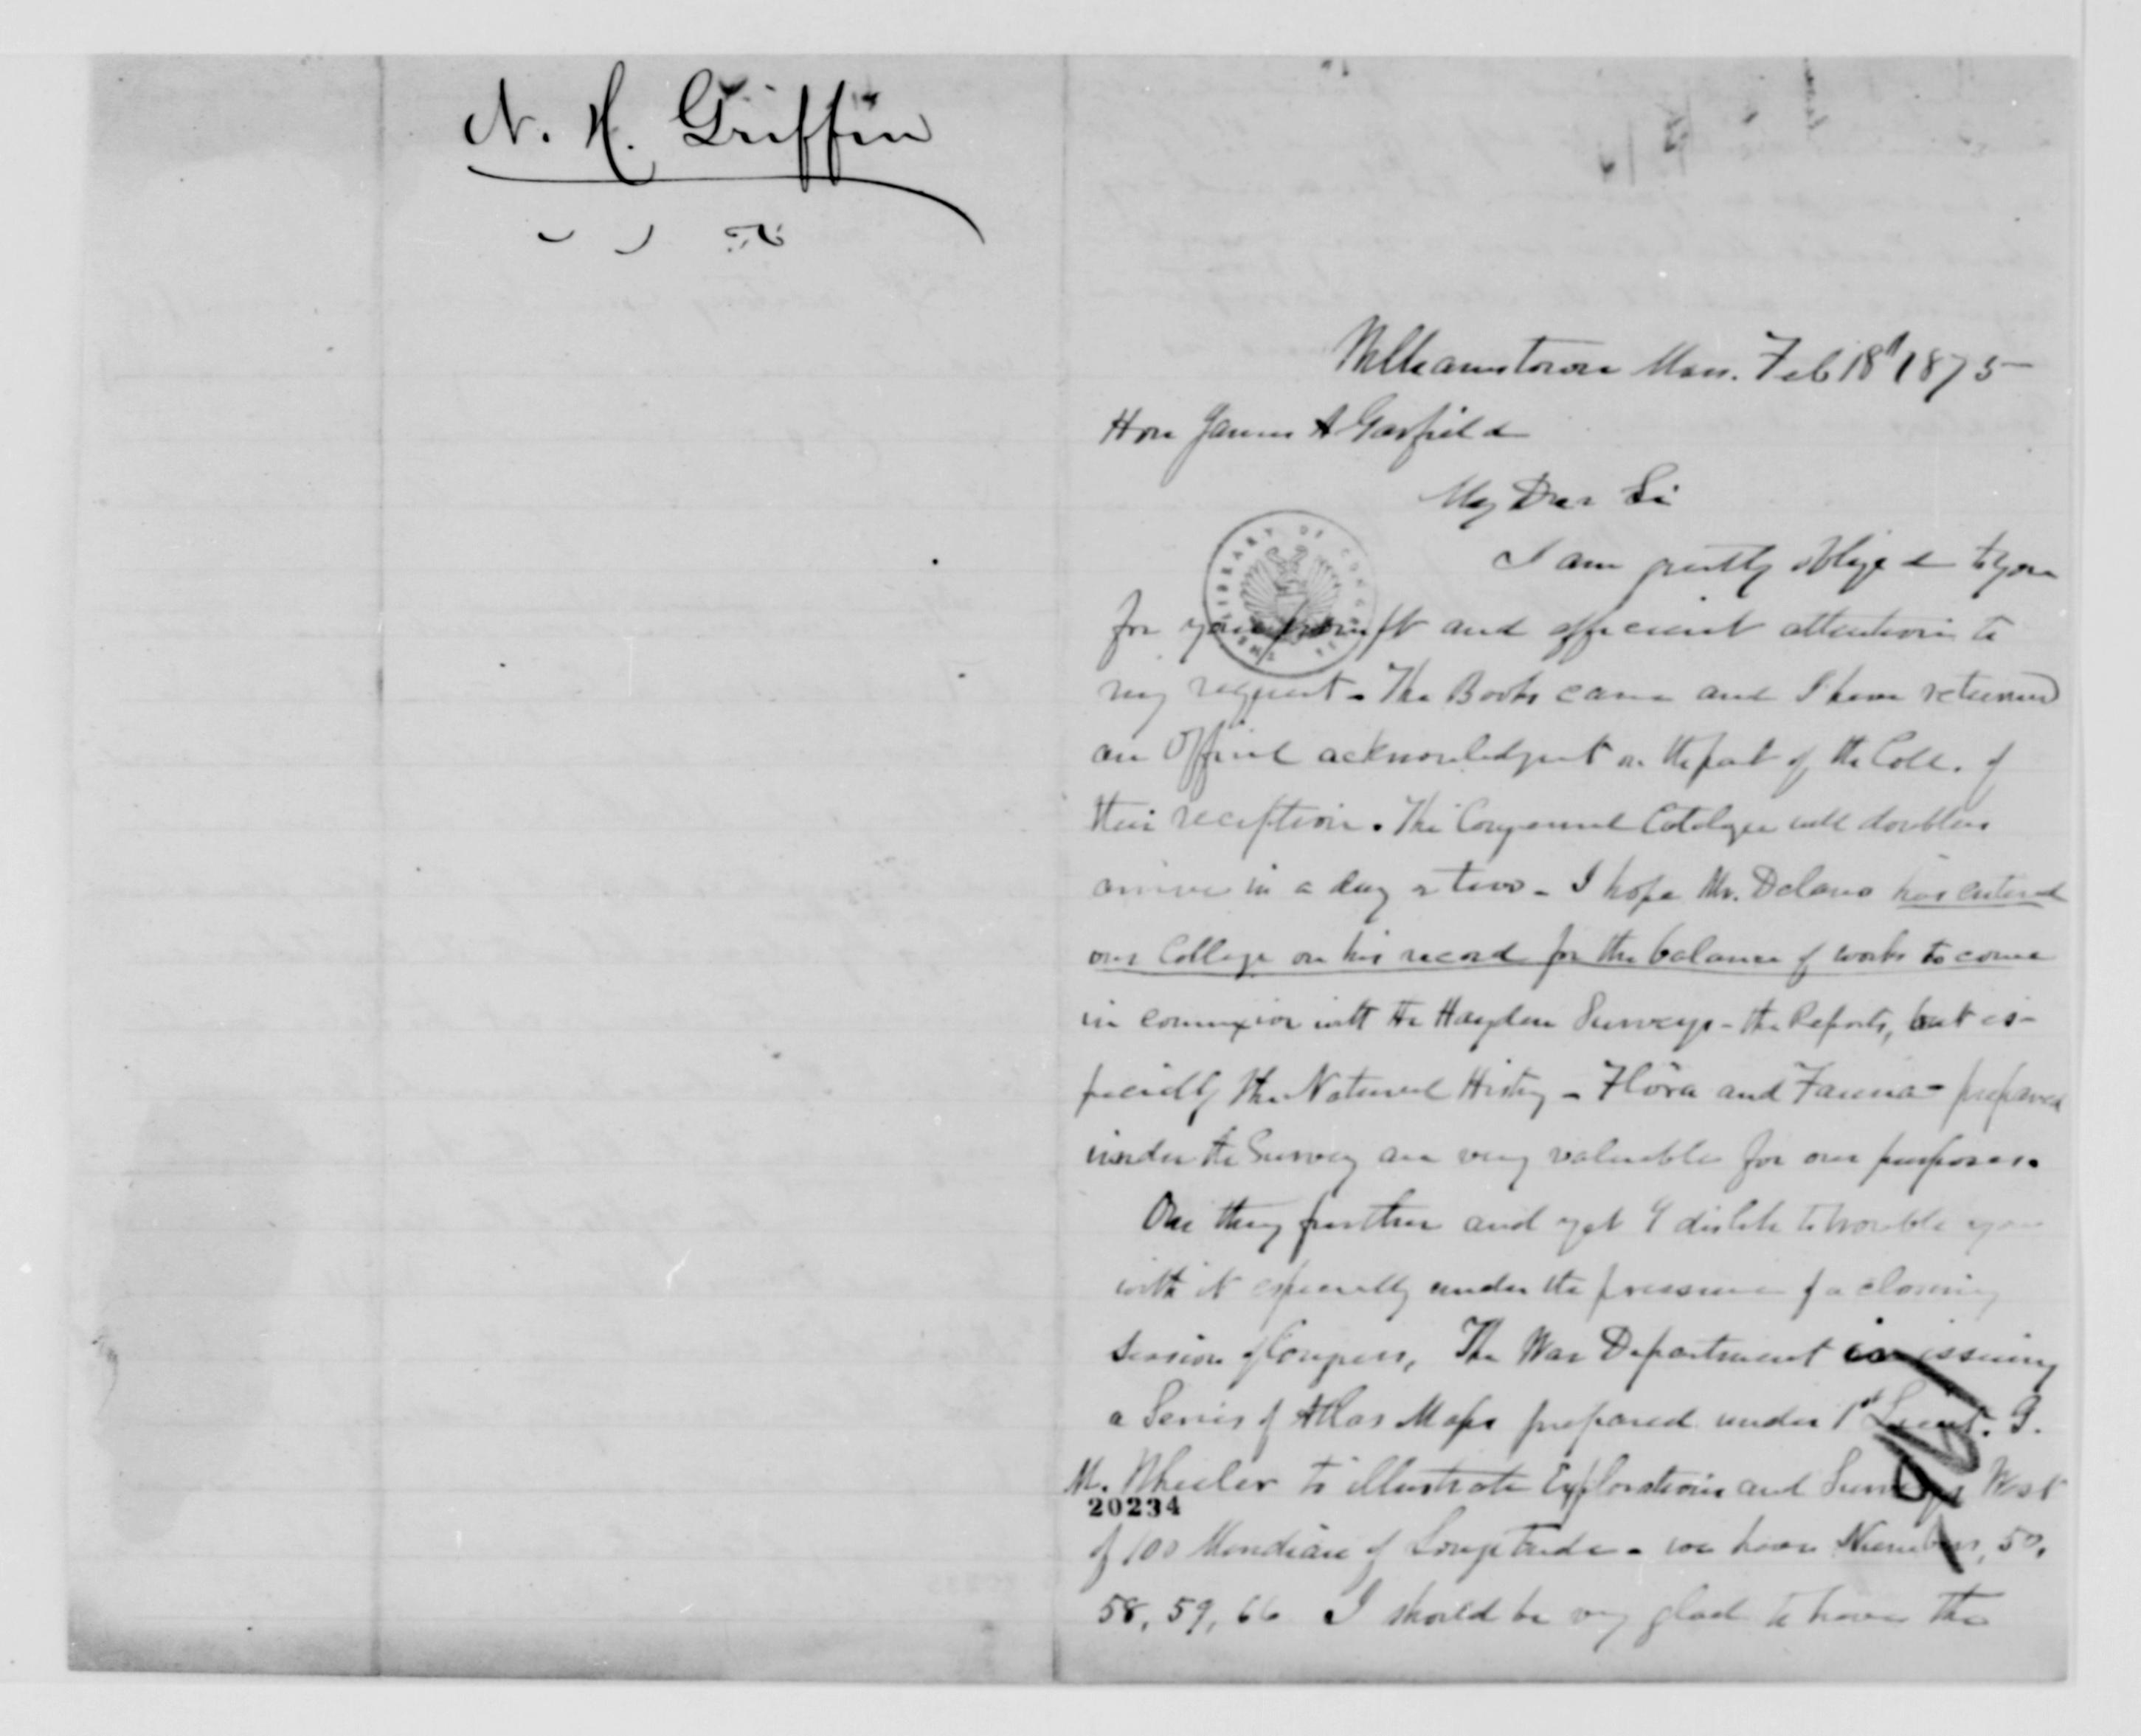 N. H. Griffin
Williamstown Mass. Feb 18th 1875
Hon James A Garfield
My Dear Sir
I am greatly obliged to you
for your prompt and efficient attention to
my request. The Books came and I have returned
an Official acknowledgment on the part of the Coll. of
their reception. The Congressional Catalogue will doubtless
arrive in a day or two - I hope Mr. Delano has entered
our College on his record for the balance of works to come
in connexion with the Hayden Surveys - the Reports, but es-
pecially the Natural History - Flora and Fauna - prepared
under the Survey are very valuable for our purposes.
One thing further and yet I dislike to trouble you
with it especially under the pressure of a closing
session of Congress, The War Department is issuing
a Series of Atlas Maps prepared under 1st Lieut. G.
M. Wheeler to illustrate Explorations and Surveys West
20234
of 100 Meridian of Longitude - we have Numbers, 50,
58, 59, 66 I should be very glad to have the
THE LIBRARY OF CONGRESS